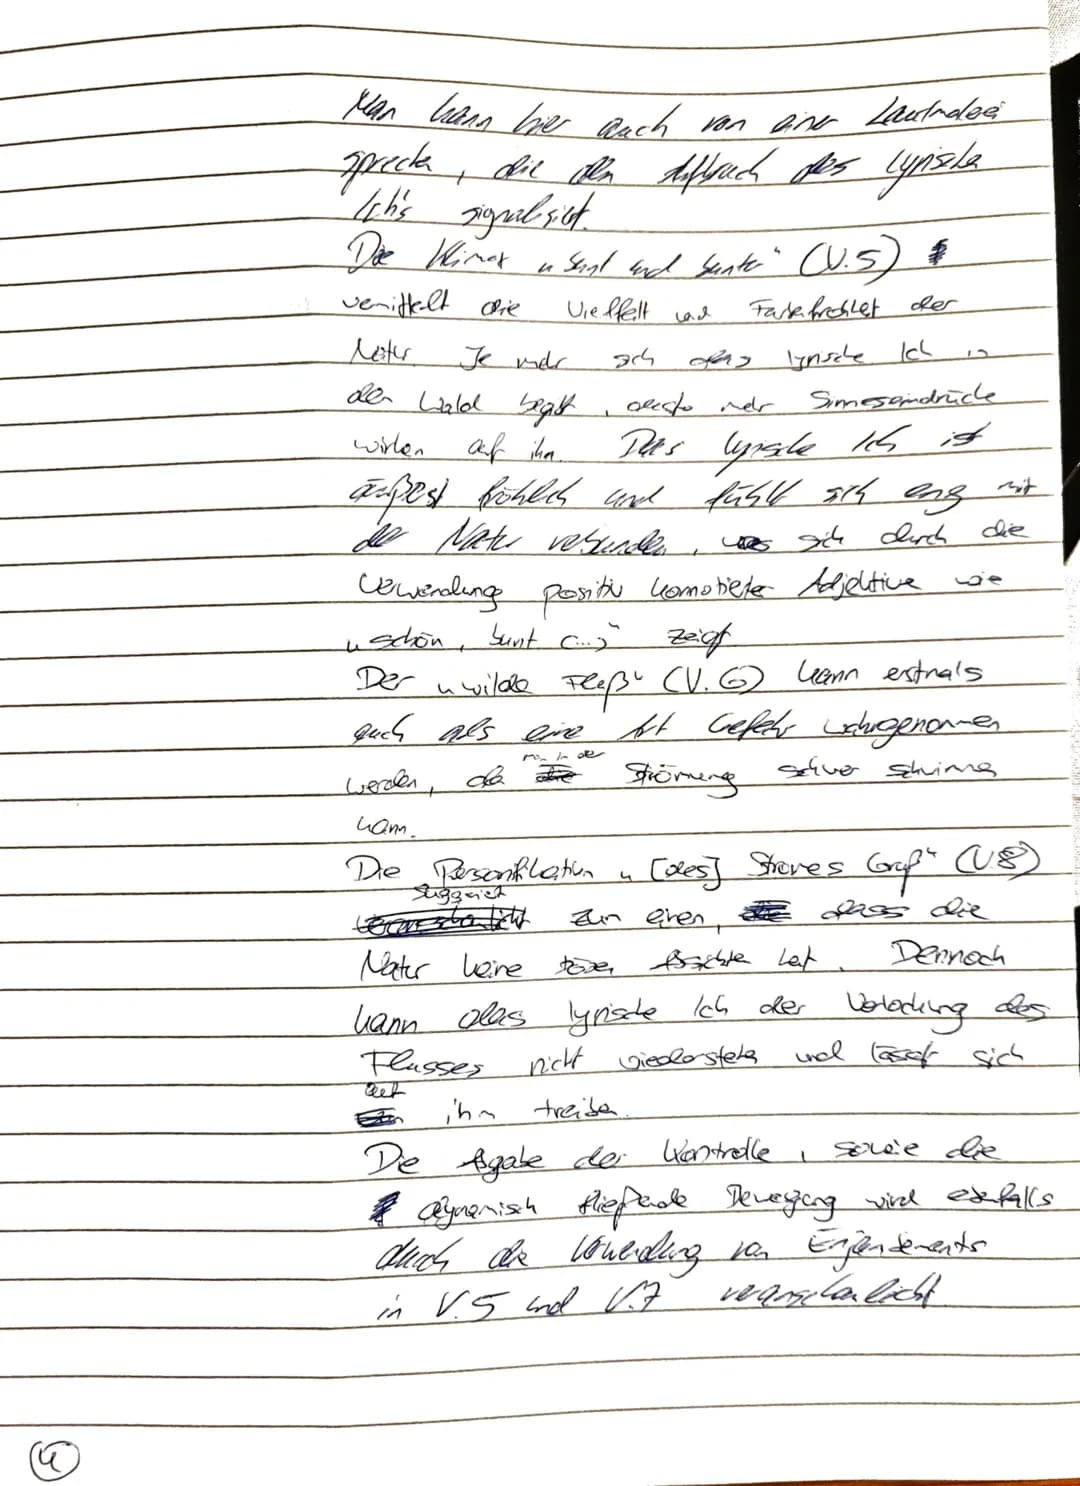 Man kann hier auch von einer Lautmalerei
sprechen, die den Aufbruch des lyrischen
Ich's signalisiert.
Die Klimax „bunt und bunter" (V.5)
vermittelt die Vielfalt und Farbenfrohheit der
Natur. Je mehr sich das lyrische Ich in
den Wald begibt, desto mehr Sinneseindrücke
wirken auf ihn. Das lyrische Ich ist
äußerst fröhlich und fühlt sich eng mit
der Natur verbunden, was sich durch die
Verwendung positiv konnotierter Adjektive wie
„schön, bunt (...)" zeigt.
Der „wilde Fluß" (V.6) kann erstmals
auch als eine Art Gefahr wahrgenommen
werden, da man in der Strömung schwer schwimmen
kann.
Die Personifikation „[des] Stromes Gruß" (V.8)
suggeriert zum einen, dass die
Natur keine bösen Absichten hat. Dennoch
kann das lyrische Ich der Verlockung des
Flusses nicht wiederstehen und lässt sich
auf ihm treiben.
Die Abgabe der Kontrolle, sowie die
dynamisch fließende Bewegung wird ebenfalls
durch die Verwendung von Enjambements
in V.5 und V.7 veranschaulicht.
4